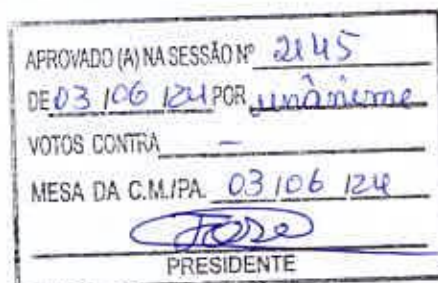 APROVADO (A) NA SESSÃO Nº 2145
DE 03/06/24 POR unânime
VOTOS CONTRA -
MESA DA C.M./PA. 03/06/24
PRESIDENTE